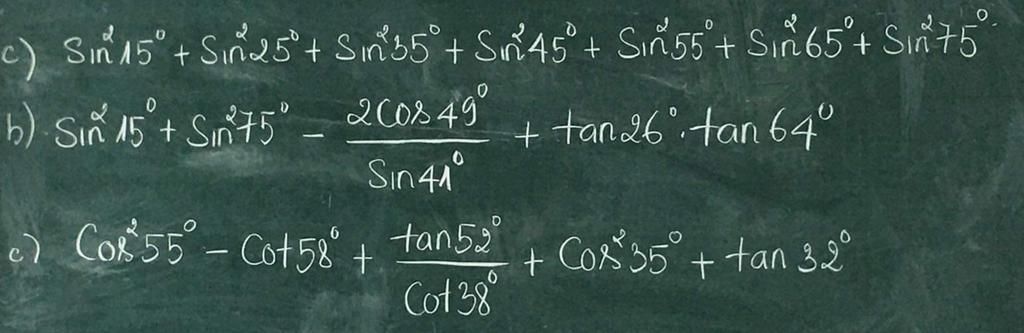 c) Sin²15° + Sin²25° + Sin²35° + Sin²45° + Sin²55° + Sin²65° + Sin²75°.
b) Sin²15° + Sin²75° - 2Cos49°/Sin41° + tan26°.tan64°
c) Cos²55° - Cot58° + tan52°/Cot38° + Cos²35° + tan32°